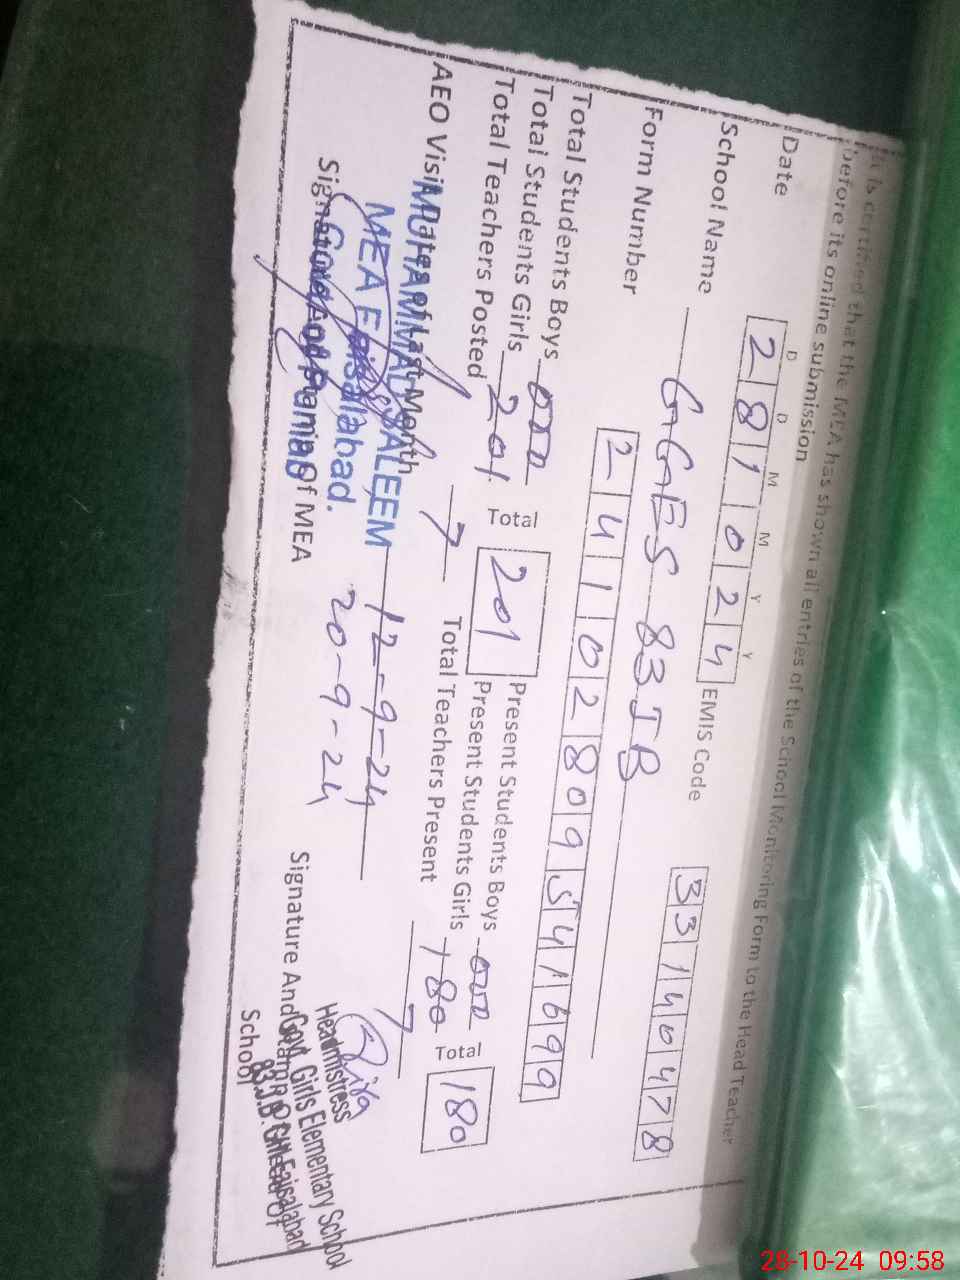 It is certified that the MEA has shown all entries of the School Monitoring Form to the Head Teacher
before its online submission
D D M M Y Y
Date 2 8 1 0 2 4 EMIS Code 3 3 1 4 0 4 7 8
School Name GGES 83 JB
Form Number 2 4 1 1 0 2 8 0 9 5 4 1 6 9 9
Total Students Boys 000 Total 201 Present Students Boys 000 Total 180
Total Students Girls 201 Present Students Girls 180
Total Teachers Posted 7 Total Teachers Present 7
AEO Visit Dates of Last Month 12-9-24
20-9-24
MUHAMMAD SALEEM
MEA Faisalabad.
Signature And Name Of MEA
Signature And
School
Headmistress
Govt. Girls Elementary School
83.J.B. Faisalabad
28-10-24 09:58